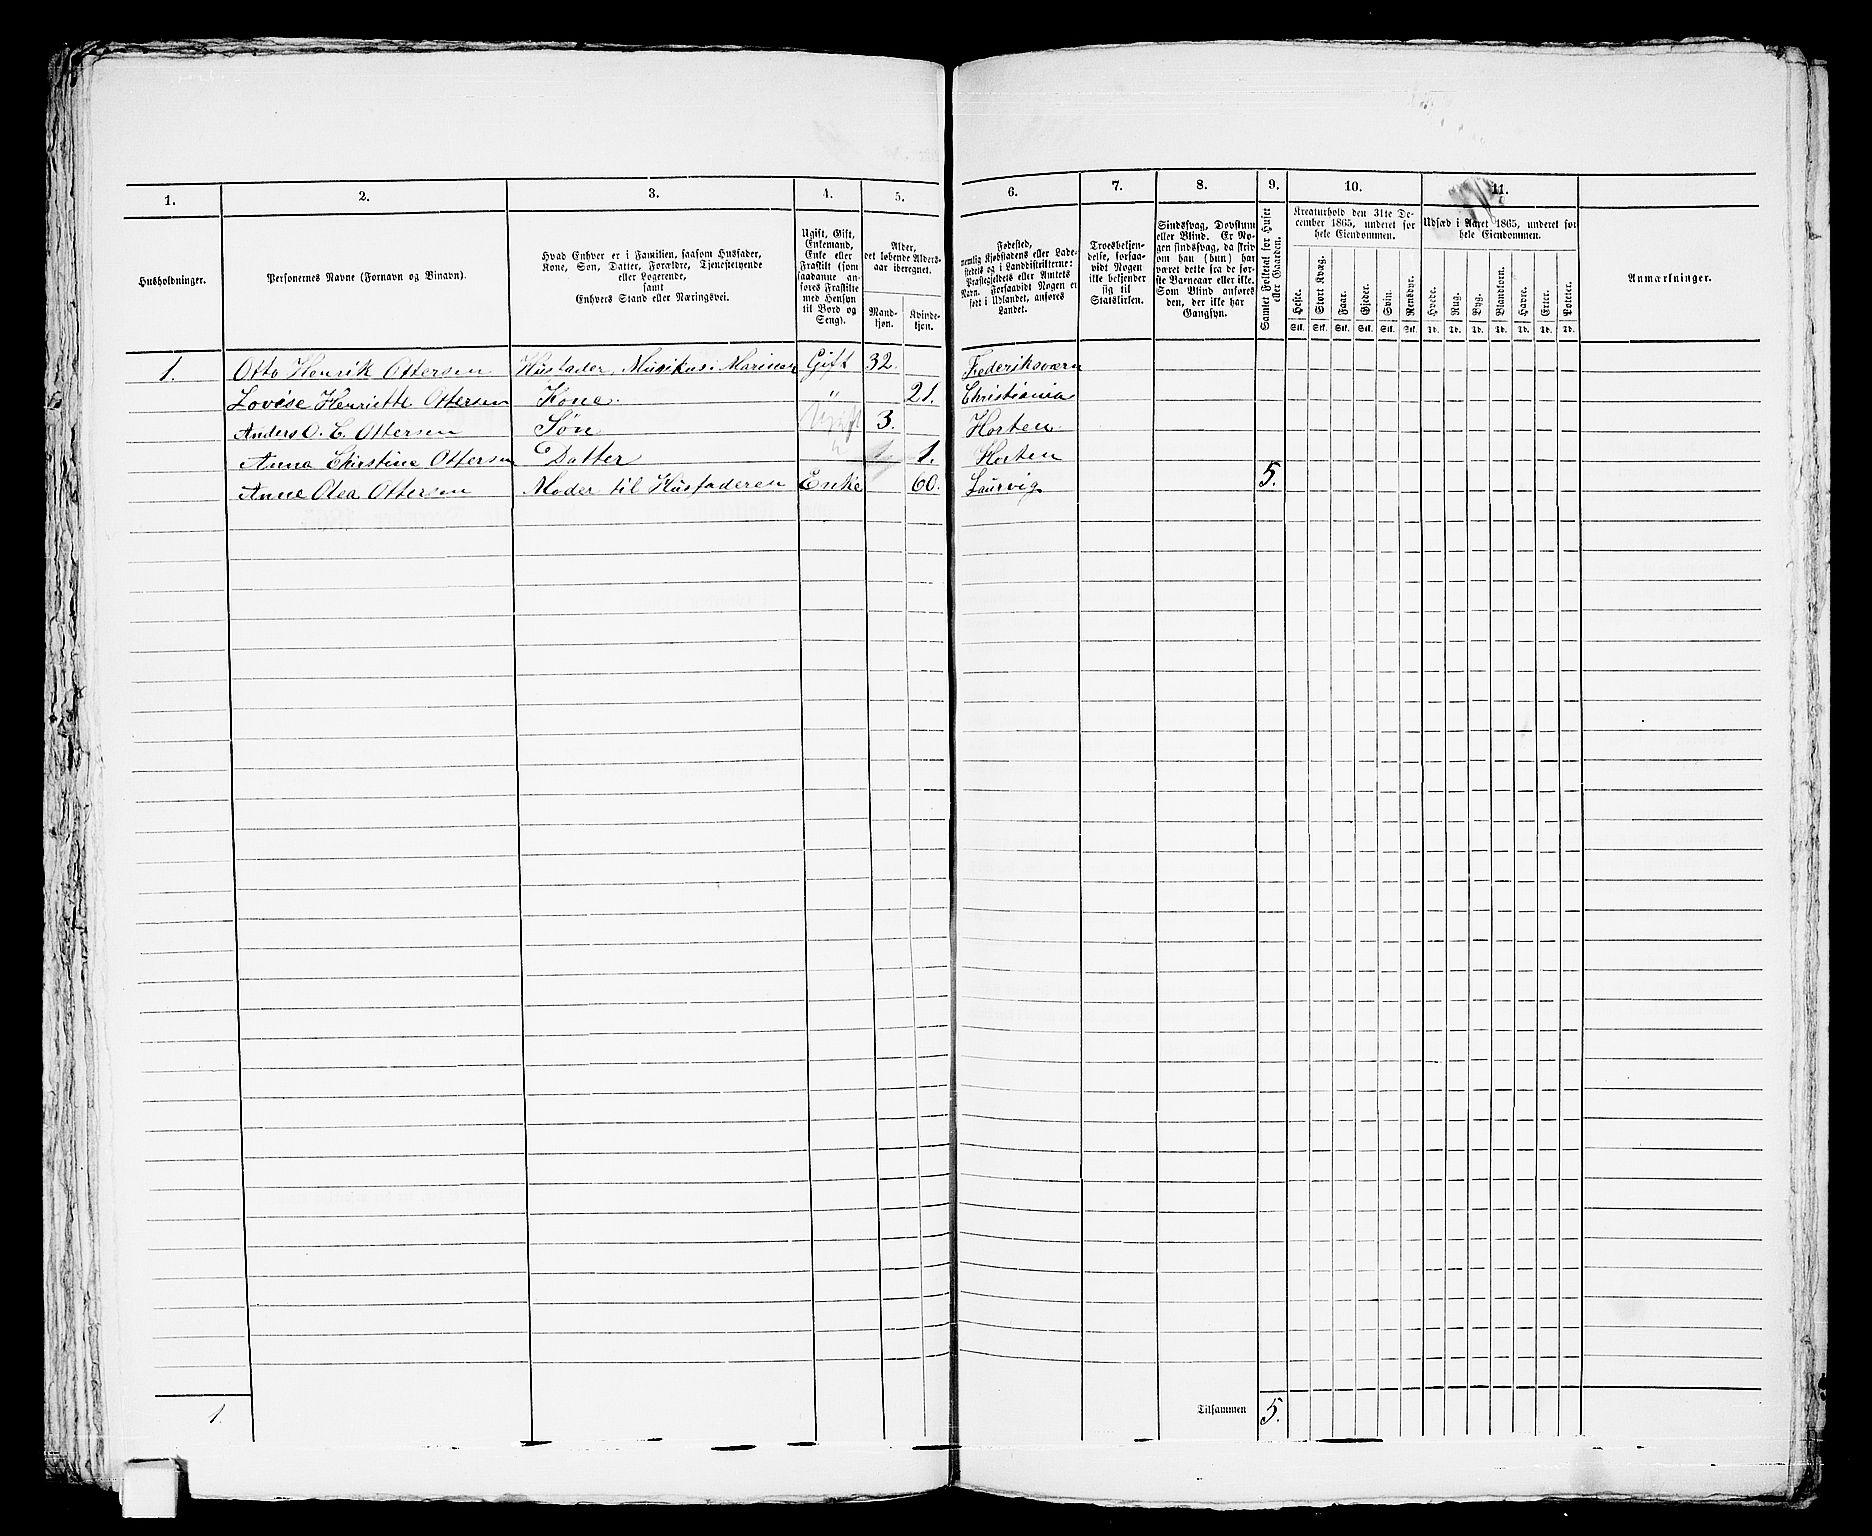 1. 2. 3. 4. 5. 6. 7. 8. 9. 10. 11.
Husholdninger.
Personernes Navne (Fornavn og Binavn).
Hvad Enhver er i Familien, saasom Husfader,
Kone, Søn, Datter, Forældre, Tjenestetyende
eller Logerende,
samt
Enhvers Stand eller Næringsvei.
Ugift, Gift,
Enkemand,
Enke eller
Fraskilt (som
saadanne an-
føres Fraskilte
med Hensyn
til Bord og
Seng).
Alder,
det løbende Alders-
aar iberegnet.
Mand-
kjøn.
Kvinde-
kjøn.
Fødested,
nemlig Kjøbstadens eller Lade-
stedets og i Landdistrikterne:
Præstegjeldets eller Amtets
Navn. Forsaavidt Nogen er
født i Udlandet, anføres
Landet.
Troesbekjen-
delse, forsaa-
vidt Nogen
ikke bekjender
sig til
Statskirken.
Sindssvag, Døvstum
eller Blind. Er No-
gen sindssvag, da skriv
om han (hun) har
været dette fra de før-
ste Barneaar eller ikke.
Som Blind anføres
den, der ikke har
Gangsyn.
Samlet Folketal for Huset
eller Gaarden.
Kreaturhold den 31te De-
cember 1865, underet for
hele Eiendommen.
Heste. Stort Kvæg. Faar. Gjeder. Svin. Rensdyr.
Stk. Stk. Stk. Stk. Stk. Stk.
Udsæd i Aaret 1865, underet for
hele Eiendommen.
Hvede. Rug. Byg. Blandkorn. Havre. Erter. Poteter.
Td. Td. Td. Td. Td. Td. Td.
Anmærkninger.
1. Otto Henrik Ottersen Husfader, Musikus i Marinen Gift 32. Frederiksværn
Lovise Henriette Ottersen Kone. " 21. Christiania
Anders O. E. Ottersen Søn Ugift 3. Horten
Anna Christine Ottersen Datter " 1. Horten
Anne Olea Ottersen Moder til Husfaderen Enke 60. Laurvig 5.
1. Tilsammen 5.